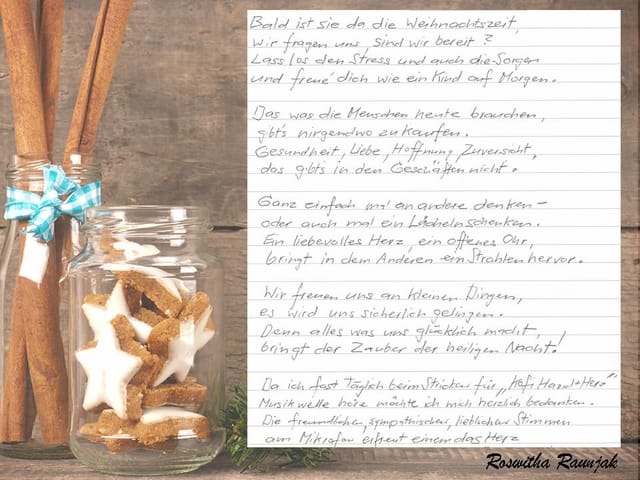 Bald ist sie da die Weihnachtszeit,
wir fragen uns, sind wir bereit?
Lass los den Stress und auch die Sorgen
und freue dich wie ein Kind auf Morgen.
Das was die Menschen heute brauchen,
gibt's nirgendwo zu kaufen.
Gesundheit, Liebe, Hoffnung, Zuversicht,
das gibt's in den Geschäften nicht.
Ganz einfach mal an andere denken –
oder auch mal ein Lächeln schenken.
Ein liebevolles Herz, ein offenes Ohr,
bringt in dem Anderen ein Strahlen hervor.
Wir freuen uns an kleinen Dingen,
es wird uns sicherlich gelingen.
Denn alles was uns glücklich macht,
bringt der Zauber der heiligen Nacht!
Da ich fast Täglich beim Stricken für "Hand+Herz"
Musikwelle höre möchte ich mich herzlich bedanken.
Die freundlichen, sympathischen, lieblichen Stimmen
am Mikrofon erfreut einem das Herz
Roswitha Raunjak